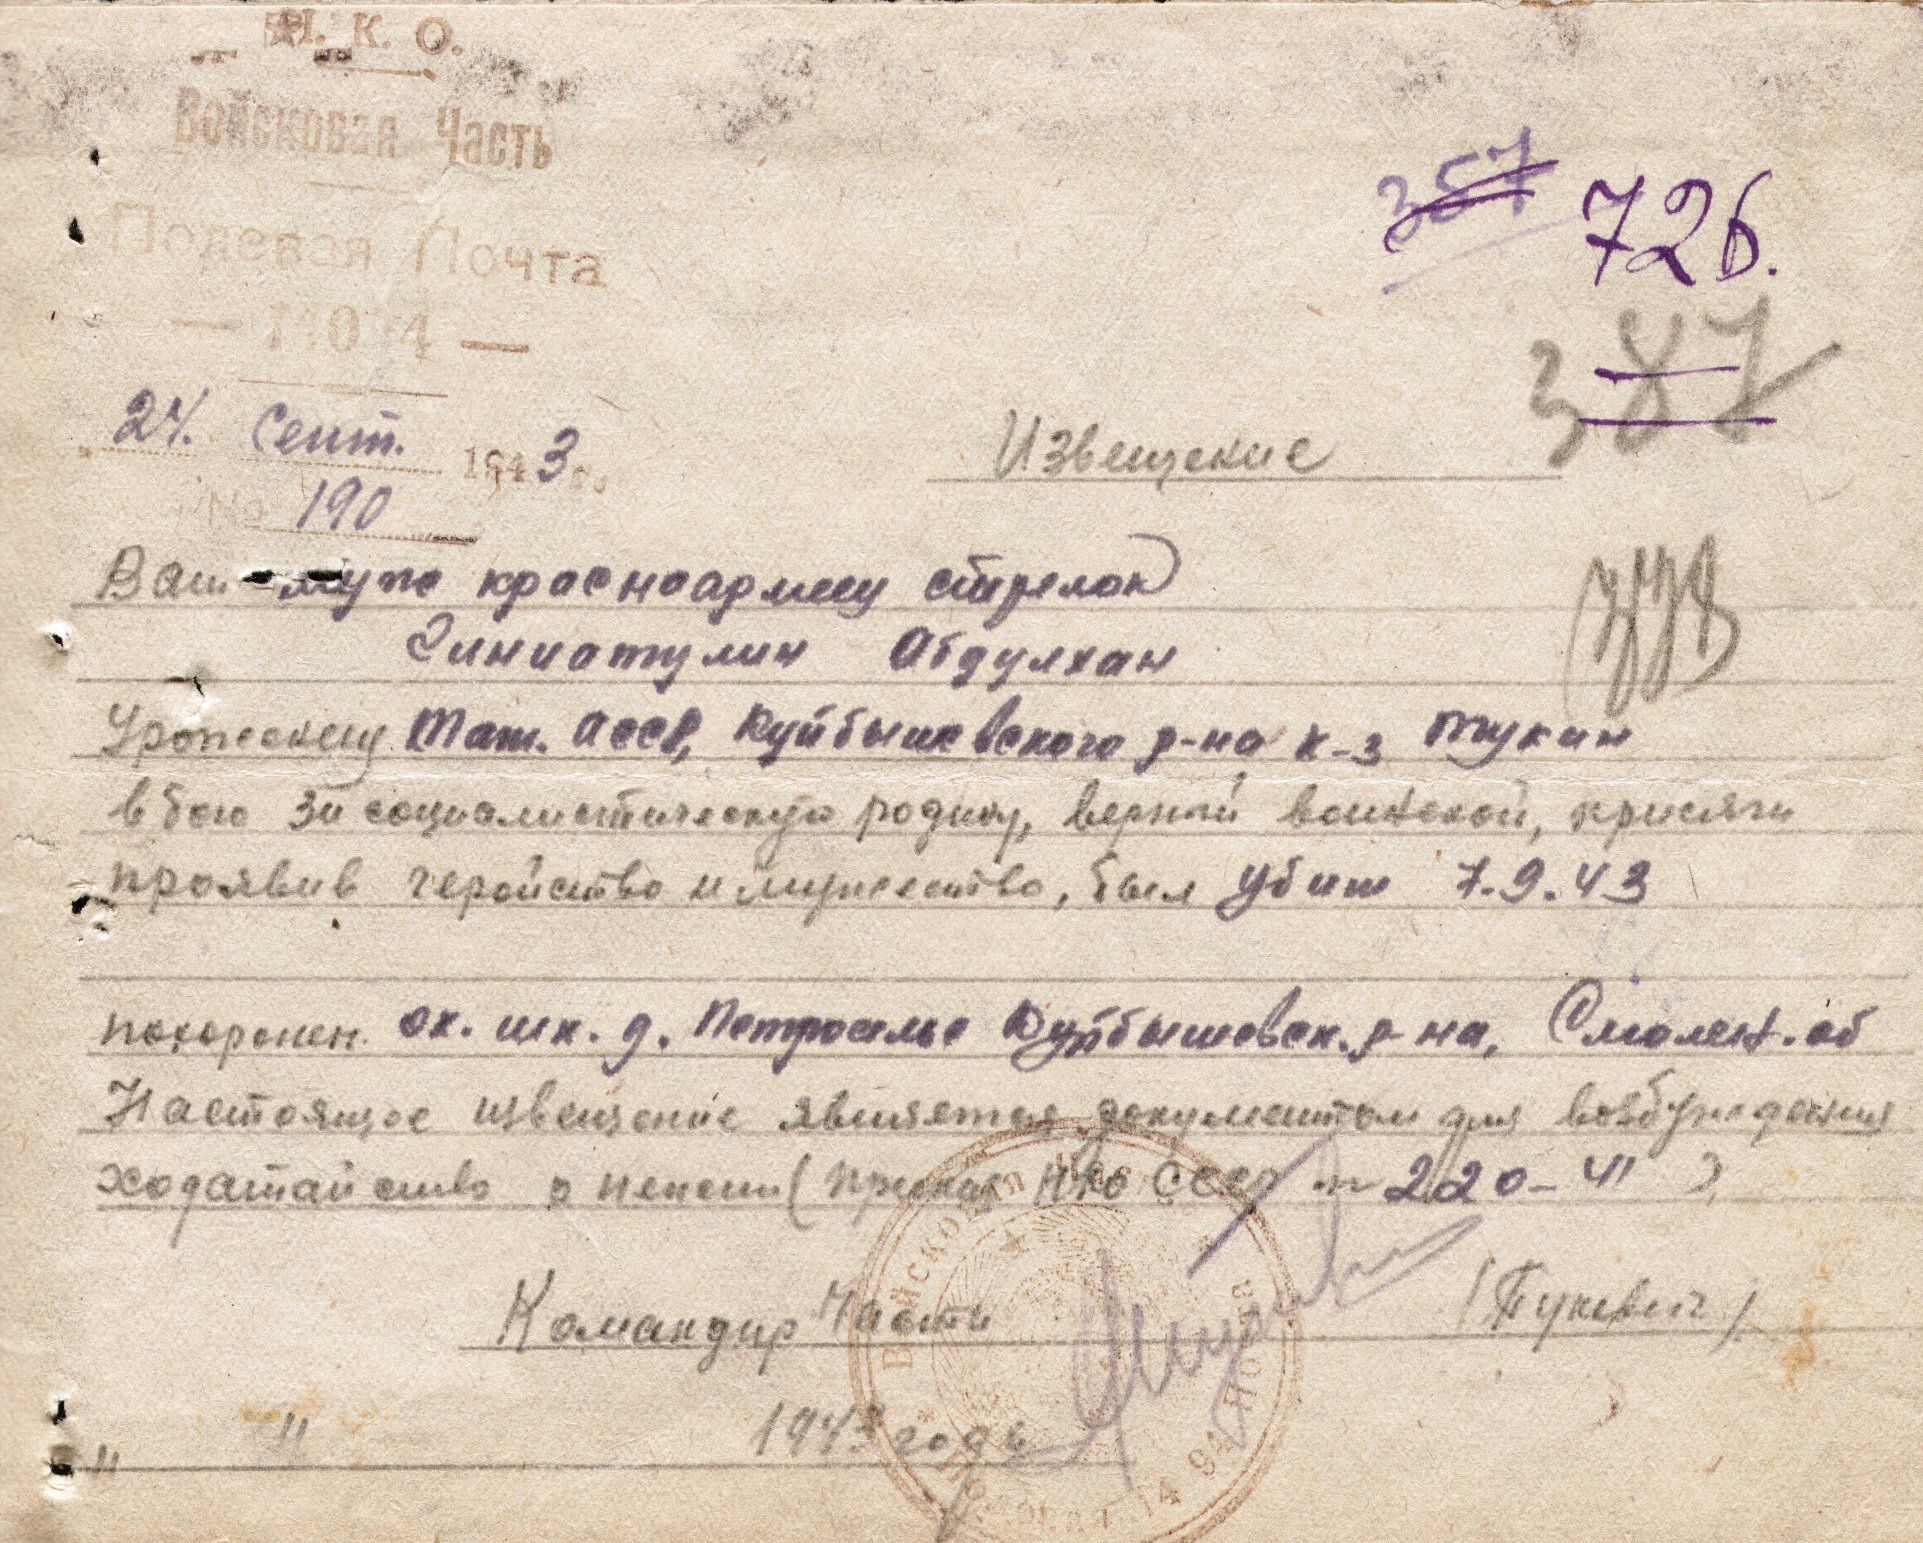 Н. К. О.
Войсковая Часть
Полевая Почта
357 726.
387
24. Сент. 1943 г.
Извещение
№ 190
Ваш муж красноармеец стрелок
Зиниатулин Абдулхан
Уроженец Тат. АССР, Куйбышевского р-на к-з Тукин
в бою за социалистическую родину, верный воинской, присяги
проявив геройство и мужество, был убит 7.9.43
похоронен ок. шк. д. Петроселье Куйбышевск. р-на, Смолен. об
Настоящее извещение является документом для возбуждения
ходатайство о пенсии (приказ НКО СССР № 220-41)
Командир Части (Пукевич)
" " 1943 года